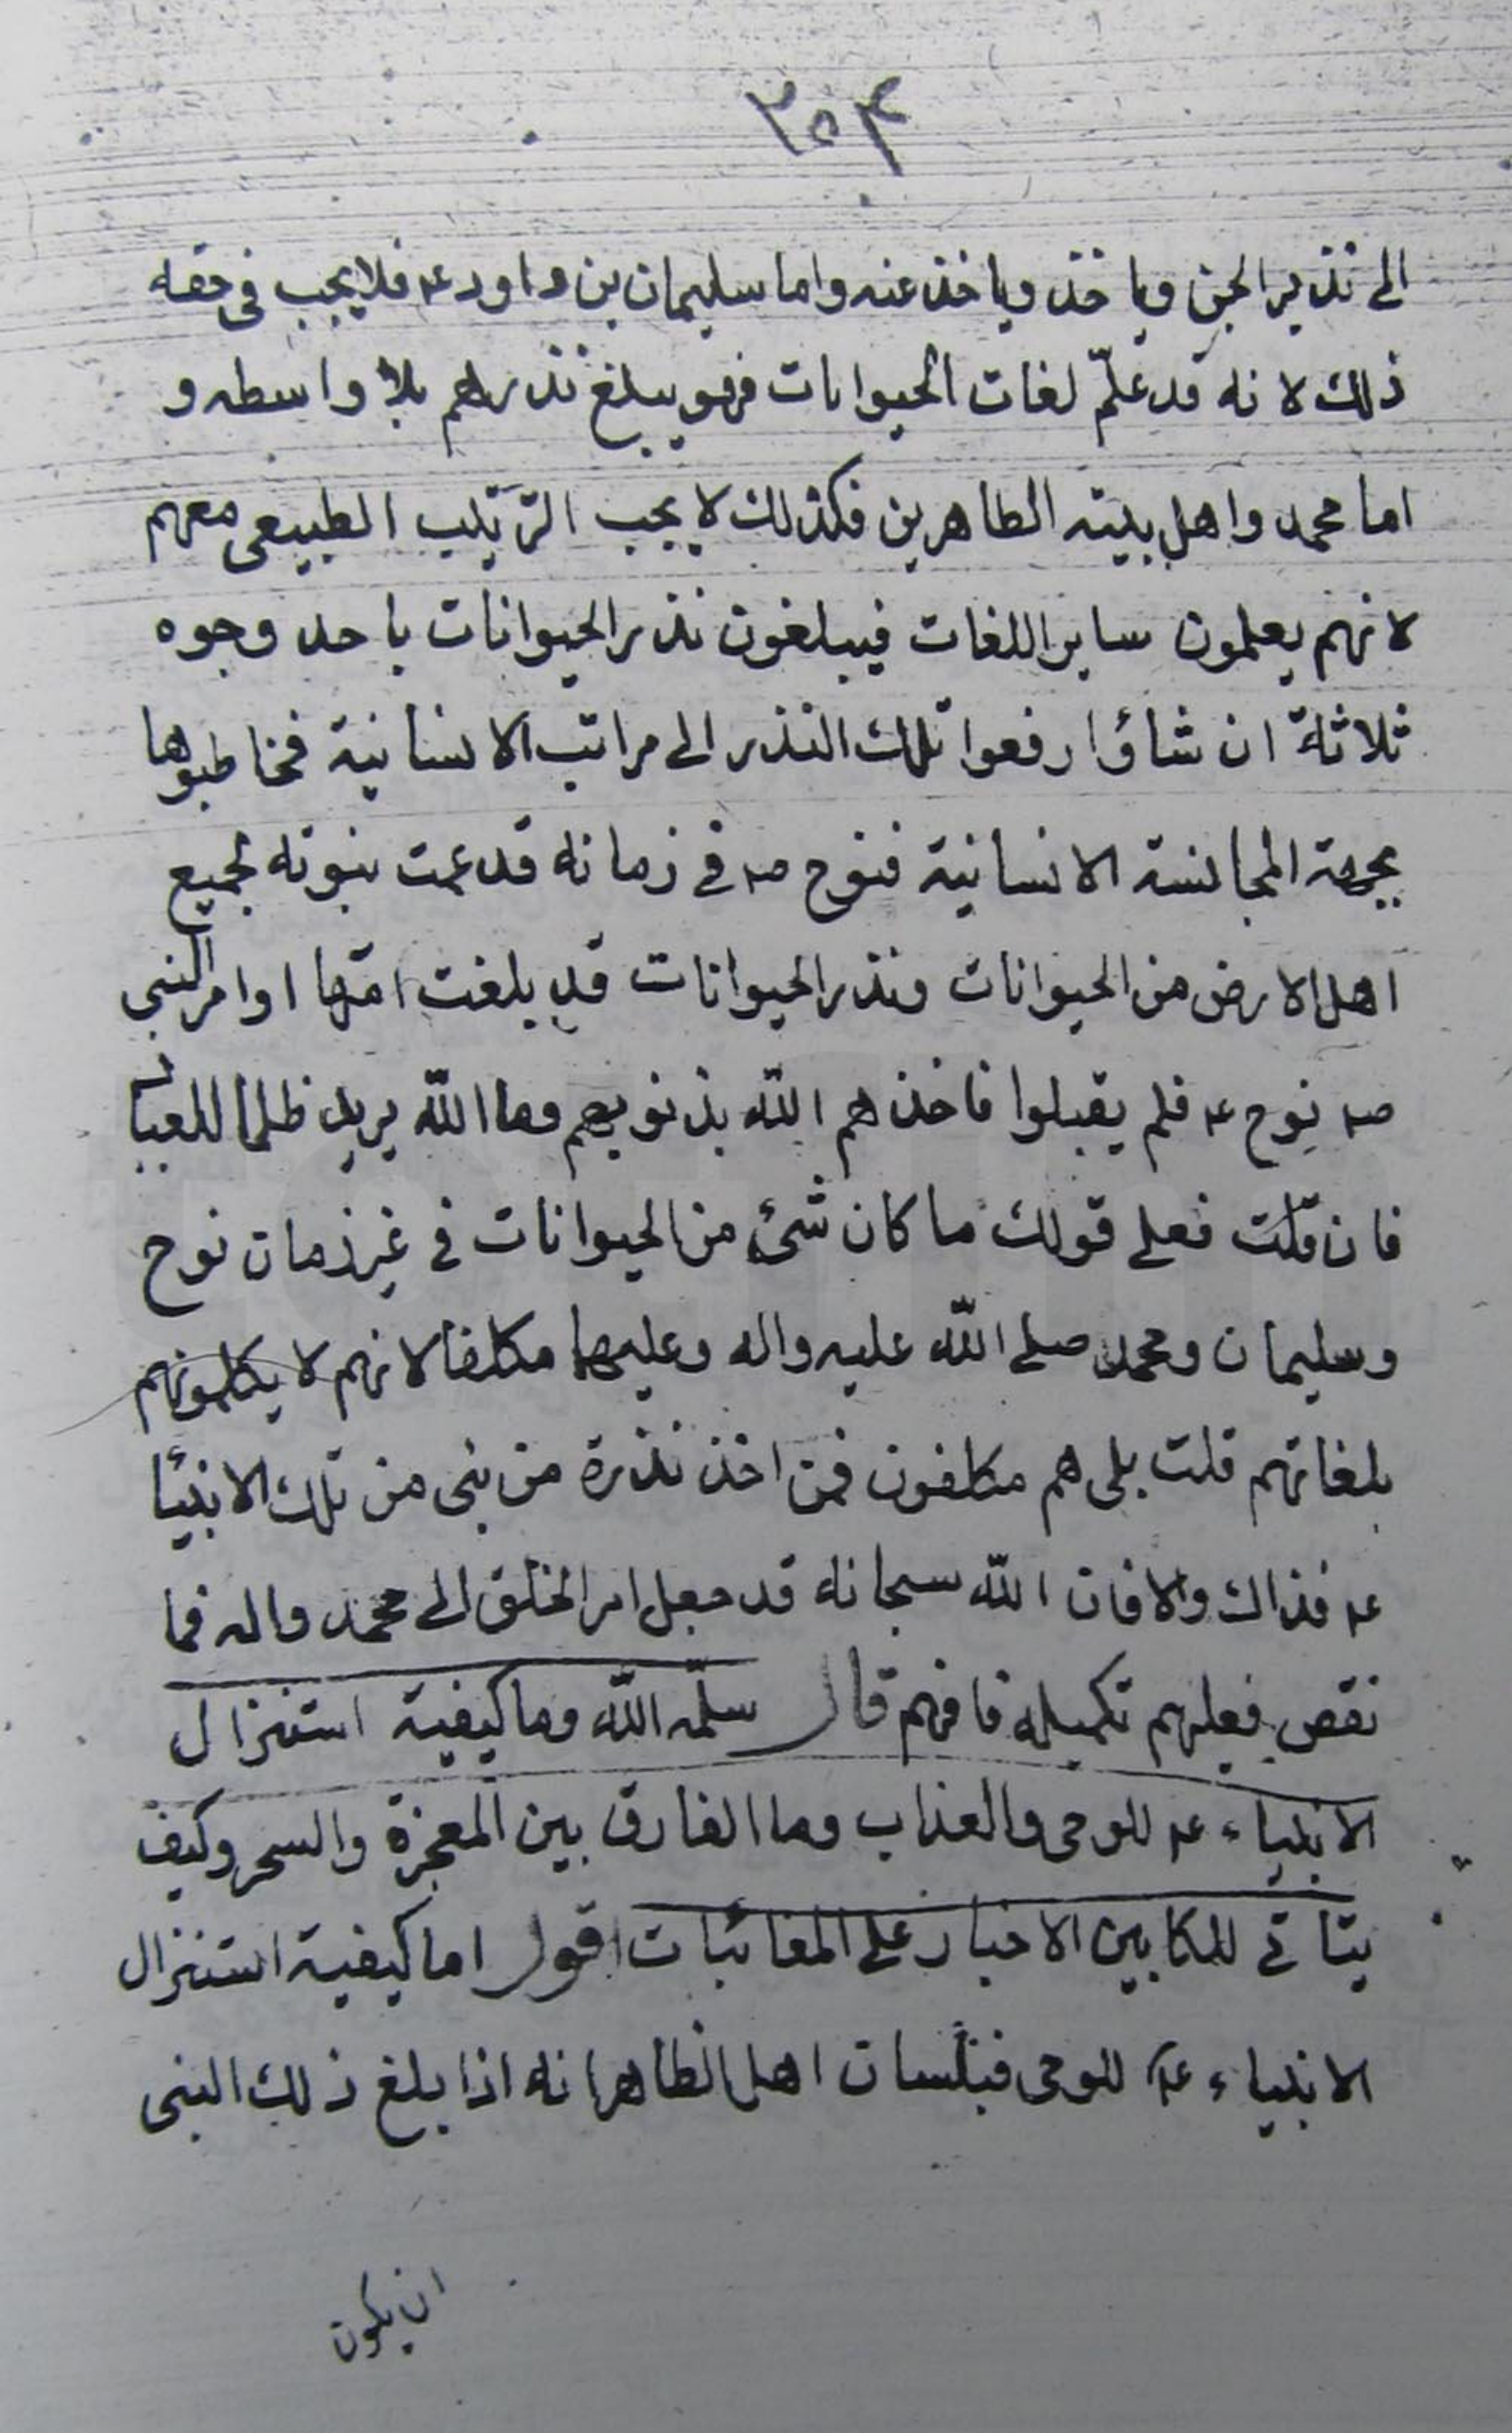 ٢٥٣
الى نذير الجن ويا خذ وياخذ عنه واما سليمان بن داود عه فلا يجب فى حقه
ذلك لانه قد علّم لغات الحيوانات فهو يبلغ نذرهم بلا واسطه و
اما محمد واهل بيته الطاهرين فكذلك لا يجب الترتيب الطبيعى معهم
لانهم يعلمون ساير اللغات فيبلغون نذر الحيوانات باحد وجوه
ثلاثة ان شاؤا رفعوا تلك النذر الى مراتب الانسانية فخاطبوها
بجهة المجانسة الانسانية فنوح صه فى زمانه قد عمت نبوته لجميع
اهل الارض من الحيوانات ونذر الحيوانات قد بلغت امتها اوامر النبى
صه نوح عه فلم يقبلوا فاخذهم الله بذنوبهم وما الله يريد ظلما للعباد
فان قلت فعلى قولك ما كان شئ من الحيوانات فى غير زمان نوح
وسليمان ومحمد صلى الله عليه واله وعليهما مكلفا لانهم لا يكلمونهم
بلغاتهم قلت بلى هم مكلفون فمن اخذ نذره من نبى من تلك الانبيا
عه فذاك والا فان الله سبحانه قد جعل امر الخلق الى محمد واله فما
نقص فعليهم تكميله فافهم قال سلمه الله وما كيفية استنزال
الانبياء عه للوحى والعذاب وما الفارق بين المعجزة والسحر وكيف
يتاتى للكابين الاخبار على المغائبات اقول اما كيفية استنزال
الانبياء عه للوحى فبلسان اهل الظاهر انه اذا بلغ ذلك النبى
ان يكون